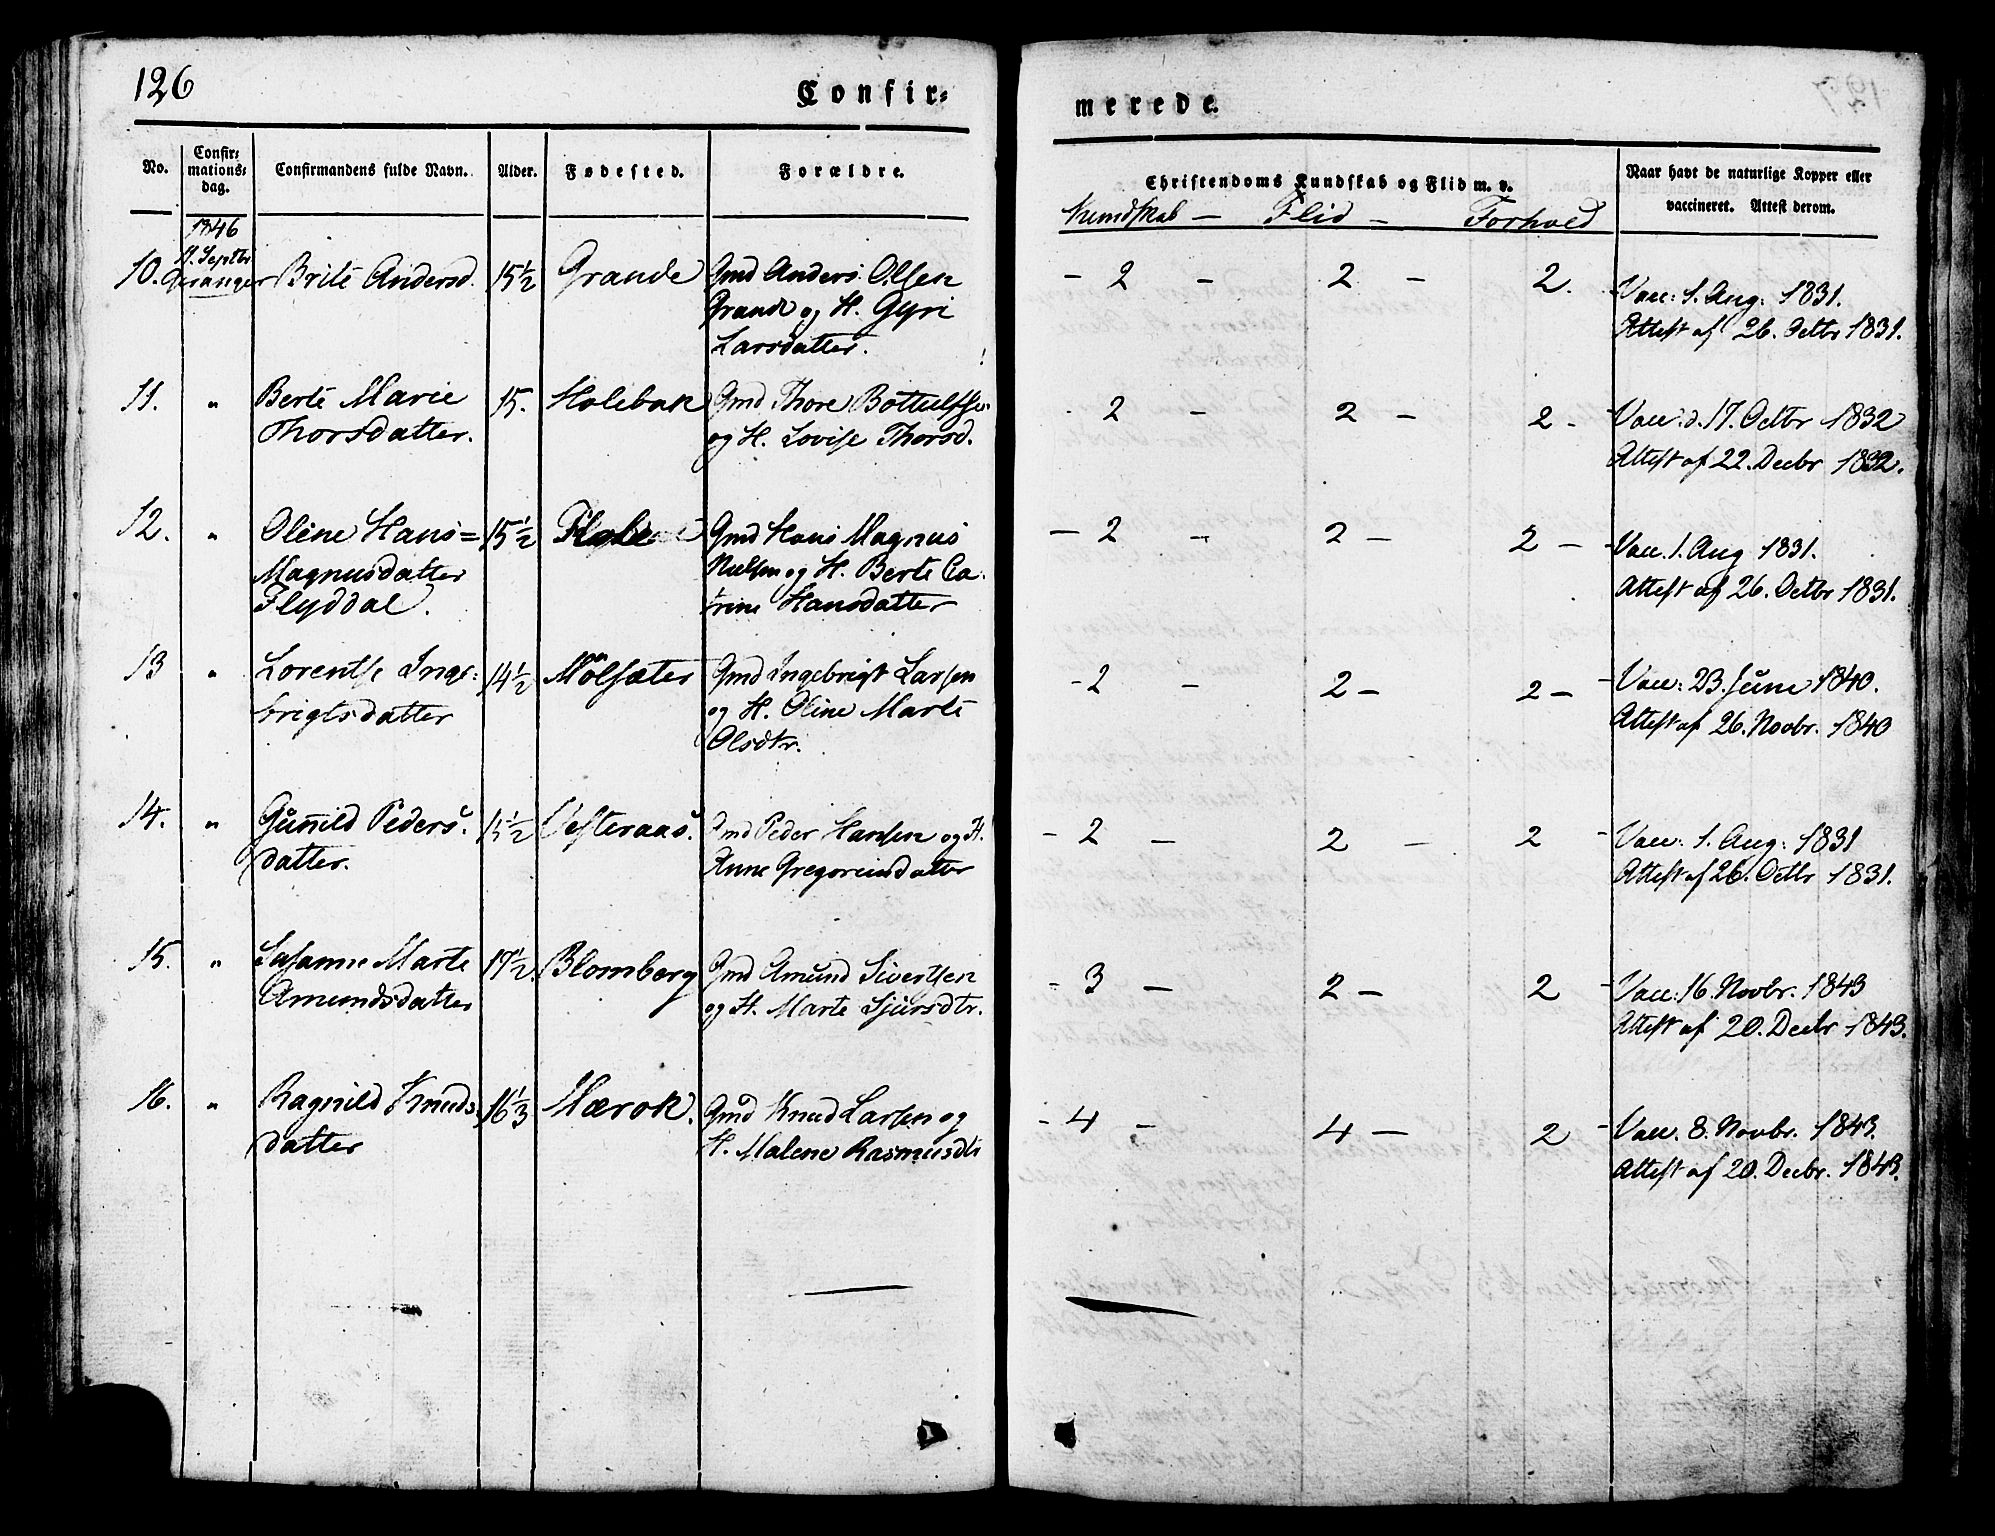 126
Confir=
merede.
No.
Confir=
mations=
dag.
Confirmandens fulde Navn.
Alder.
Fødested.
Forældre.
Christendoms Kundskab og Flid m. v.
Kundskab — Flid — Forhold
Naar havt de naturlige Kopper eller
vaccineret. Attest derom.
1846
Septbr
Geranger
10. Brite Andersd. 15½ Grande Gmd Anders Olsen
Grande og H. Gyri
Larsdatter.
- 2 - 2 - 2. Vacc: 1. Aug: 1831.
Attest af 26. Octbr 1831.
11. " Berte Marie 15. Holebak Gmd Thore Bottulfse
Thorsdatter. og H. Lovise Thorsd.
- 2 - 2 - 2 - Vacc. d. 17. Octbr 1832
Attest af 22. Decbr 1832.
12. " Oline Hans= 15½ Gmd Hans Magnus
Magnusdatter Nielsen og H. Berte Ca
Flyddal. trine Hansdatter
- 2 - 2 - 2 - Vacc. 1. Aug 1831.
Attest af 26. Octbr 1831.
13 " Lorentse Inge= 14½ Molsæter Gmd Ingebrigt Larsen
brigtsdatter og H. Oline Marte
Olsdtr.
- 2 - 2 - 2 - Vacc: 23. Juni 1840.
Attest af 26. Novbr. 1840
14. " Gunild Peders 15½ Vesteraas. Gmd Peder Hansen og H.
datter. Anne Gregoriusdatter
- 2 - 2 - 2 - Vacc: 1. Aug: 1831
Attest af 26. Octbr 1831.
15. " Susanne Marte 17½ Blomberg Gmd Amund Sivertsen
Amundsdatter og H. Marte Sjursdtr.
- 3 - 2 - 2 - Vacc: 16. Novbr. 1843
Attest af 20. Decbr 1843.
16. " Ragnild Knuds 16⅓ Mærok. Gmd Knud Larsen og
datter H. Malene Rasmusdtr
- 4 - 4 - 2 - Vacc. 8. Novbr. 1843.
Attest af 20. Decbr. 1843.